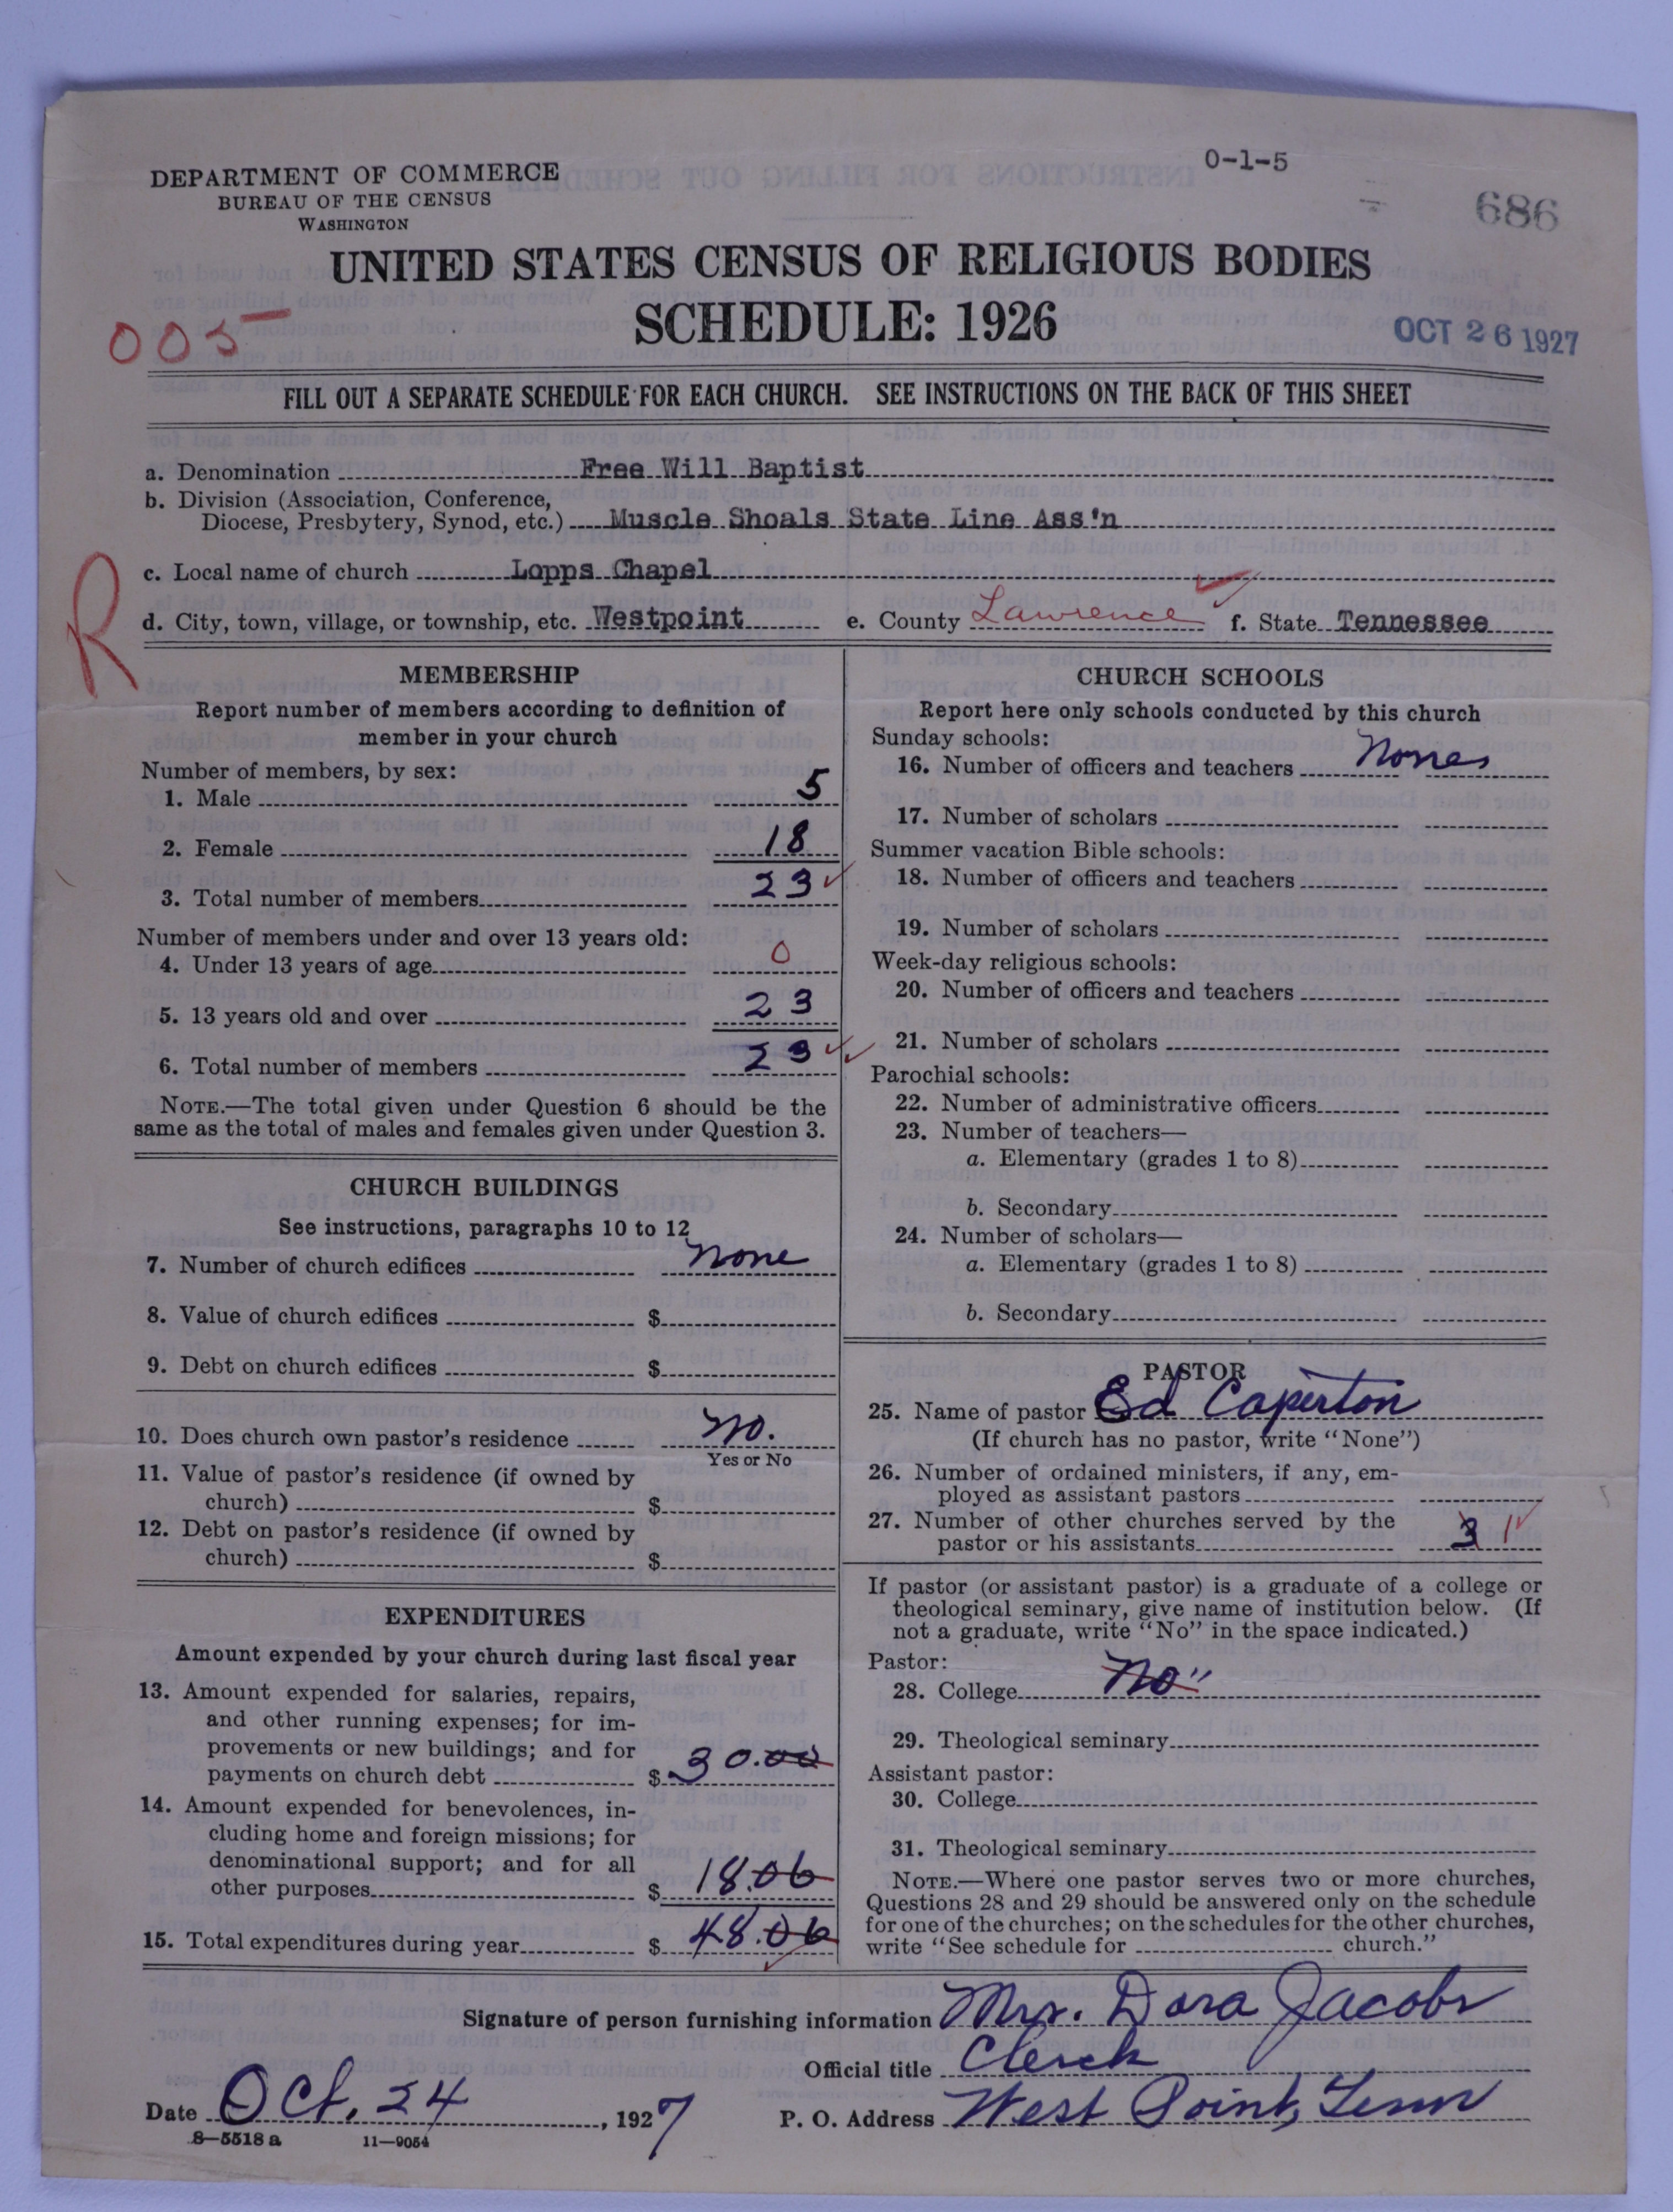 0-1-5
DEPARTMENT OF COMMERCE
BUREAU OF THE CENSUS
WASHINGTON
686
UNITED STATES CENSUS OF RELIGIOUS BODIES
SCHEDULE: 1926
005
OCT 26 1927
FILL OUT A SEPARATE SCHEDULE FOR EACH CHURCH. SEE INSTRUCTIONS ON THE BACK OF THIS SHEET
a. Denomination Free Will Baptist
b. Division (Association, Conference,
Diocese, Presbytery, Synod, etc.) Muscle Shoals State Line Ass'n
R
c. Local name of church Lopps Chapel
d. City, town, village, or township, etc. Westpoint e. County Lawrence f. State Tennessee
MEMBERSHIP
Report number of members according to definition of
member in your church
Number of members, by sex:
1. Male 5
2. Female 18
3. Total number of members 23
Number of members under and over 13 years old:
4. Under 13 years of age 0
5. 13 years old and over 23
6. Total number of members 23
NOTE.—The total given under Question 6 should be the
same as the total of males and females given under Question 3.
CHURCH BUILDINGS
See instructions, paragraphs 10 to 12
7. Number of church edifices none
8. Value of church edifices $
9. Debt on church edifices $
10. Does church own pastor's residence no.
Yes or No
11. Value of pastor's residence (if owned by
church) $
12. Debt on pastor's residence (if owned by
church) $
EXPENDITURES
Amount expended by your church during last fiscal year
13. Amount expended for salaries, repairs,
and other running expenses; for im-
provements or new buildings; and for
payments on church debt $ 30.00
14. Amount expended for benevolences, in-
cluding home and foreign missions; for
denominational support; and for all
other purposes $ 18.06
15. Total expenditures during year $ 48.06
CHURCH SCHOOLS
Report here only schools conducted by this church
Sunday schools:
16. Number of officers and teachers None
17. Number of scholars
Summer vacation Bible schools:
18. Number of officers and teachers
19. Number of scholars
Week-day religious schools:
20. Number of officers and teachers
21. Number of scholars
Parochial schools:
22. Number of administrative officers
23. Number of teachers—
a. Elementary (grades 1 to 8)
b. Secondary
24. Number of scholars—
a. Elementary (grades 1 to 8)
b. Secondary
PASTOR
25. Name of pastor Ed Caperton
(If church has no pastor, write "None")
26. Number of ordained ministers, if any, em-
ployed as assistant pastors
27. Number of other churches served by the
pastor or his assistants 3 1
If pastor (or assistant pastor) is a graduate of a college or
theological seminary, give name of institution below. (If
not a graduate, write "No" in the space indicated.)
Pastor:
28. College No"
29. Theological seminary
Assistant pastor:
30. College
31. Theological seminary
NOTE.—Where one pastor serves two or more churches,
Questions 28 and 29 should be answered only on the schedule
for one of the churches; on the schedules for the other churches,
write "See schedule for church."
Signature of person furnishing information Mrs. Dora Jacobs
Official title Clerk
Date Oct. 24, 1927 P. O. Address West Point, Tenn
8—5518 a 11—9054